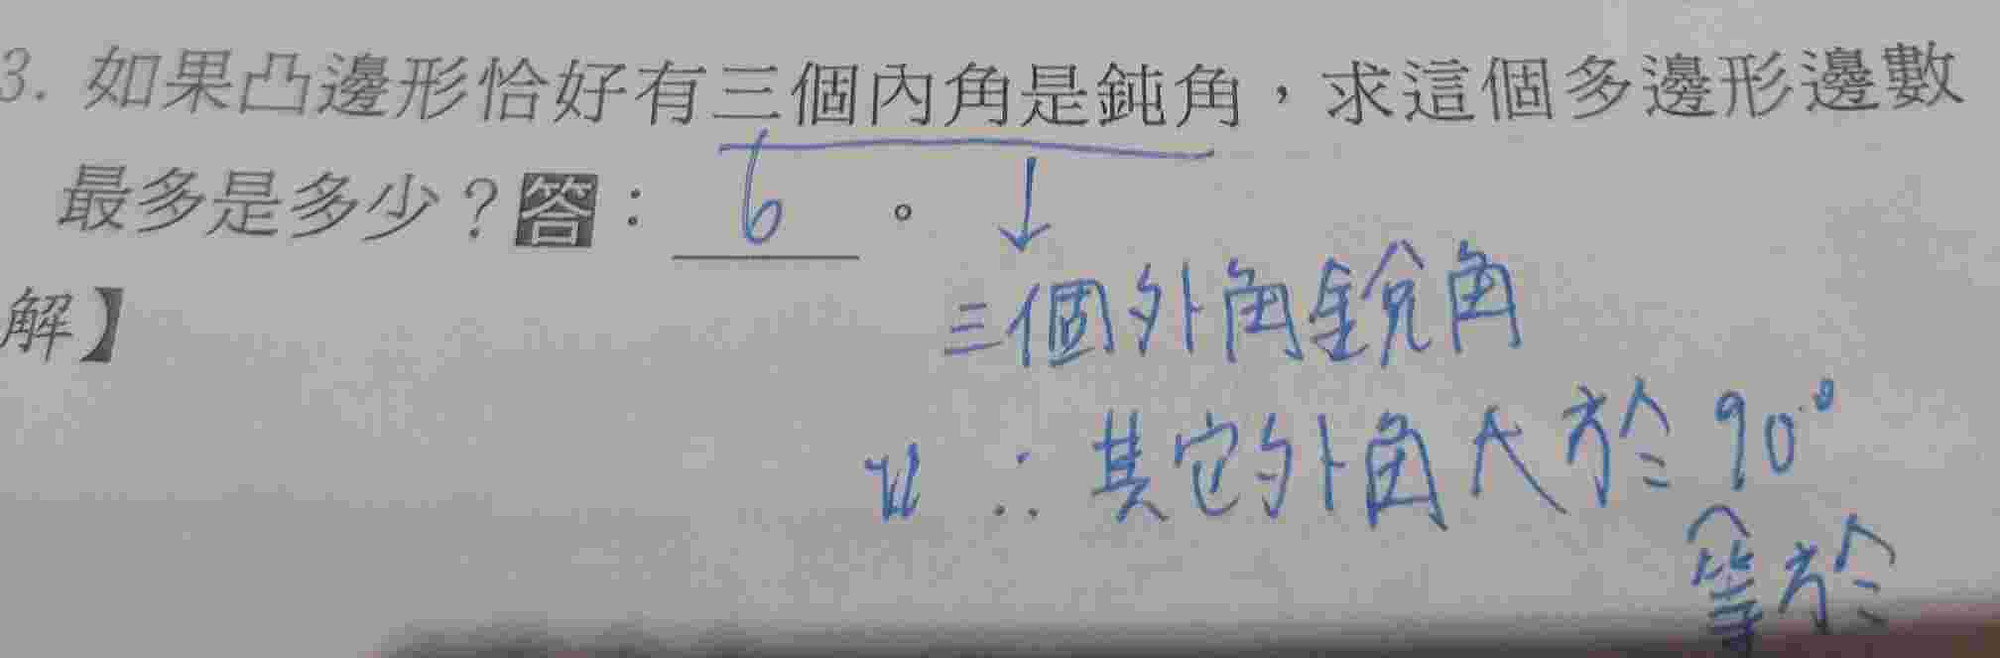 3. 如果凸邊形恰好有三個內角是鈍角，求這個多邊形邊數
最多是多少？答：6。
解】
三個外角銳角
∴其它外角大於90°
等於